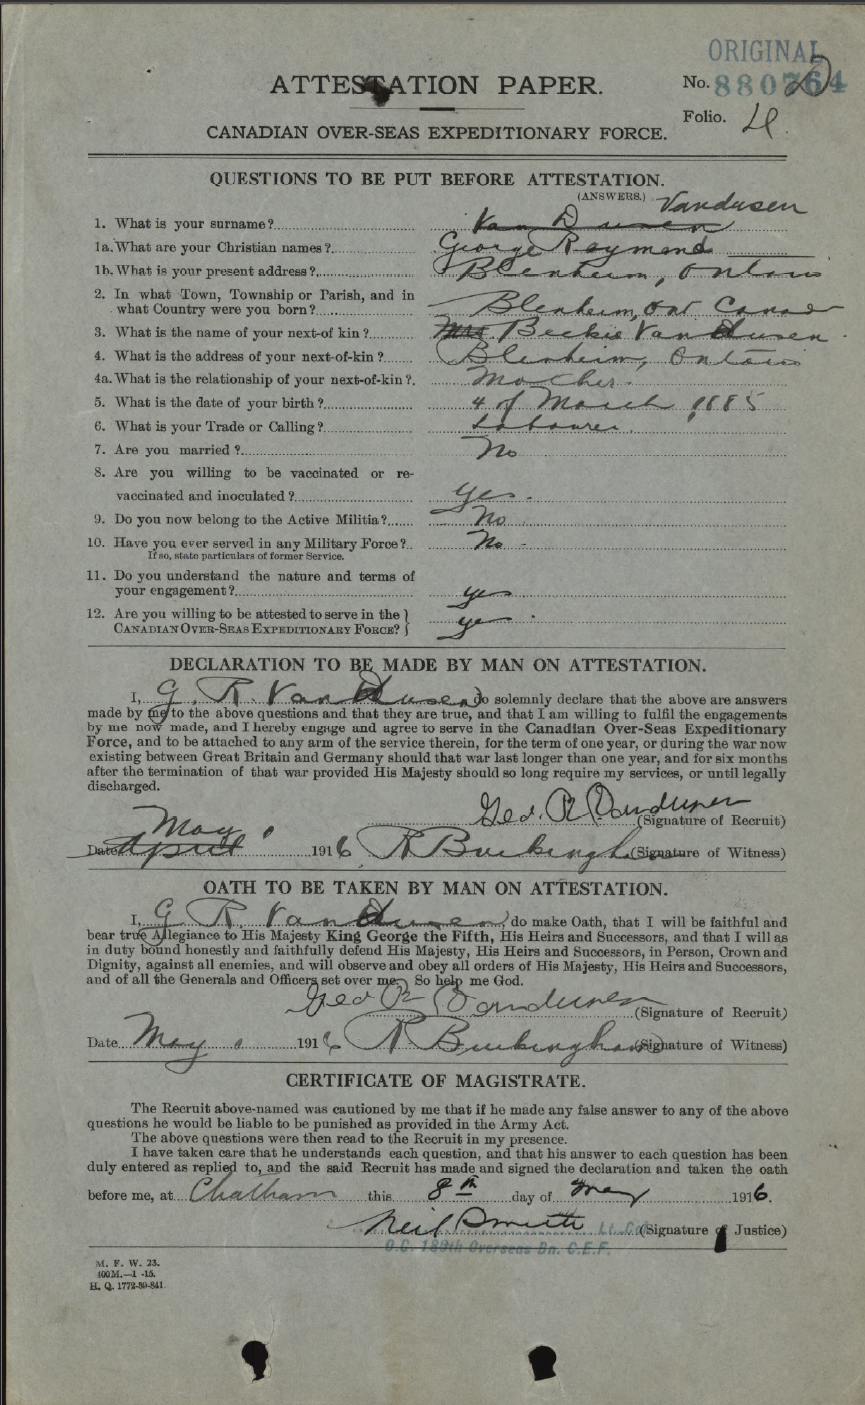 ORIGINAL
ATTESTATION PAPER.
No. 880764
Folio.
CANADIAN OVER-SEAS EXPEDITIONARY FORCE.
QUESTIONS TO BE PUT BEFORE ATTESTATION.
(ANSWERS.) Vandusen
1. What is your surname? Van Dusen
1a. What are your Christian names? George Raymond
1b. What is your present address? Blenheim, Ontario
2. In what Town, Township or Parish, and in
what Country were you born? Blenheim, Ont Canada
3. What is the name of your next-of kin? Mrs Beckie Van Dusen
4. What is the address of your next-of-kin? Blenheim, Ontario
4a. What is the relationship of your next-of-kin? Mother.
5. What is the date of your birth? 4 of March 1885
6. What is your Trade or Calling? Labourer.
7. Are you married? No
8. Are you willing to be vaccinated or re-
vaccinated and inoculated? yes.
9. Do you now belong to the Active Militia? No
10. Have you ever served in any Military Force? No -
If so, state particulars of former Service.
11. Do you understand the nature and terms of
your engagement? yes
12. Are you willing to be attested to serve in the }
CANADIAN OVER-SEAS EXPEDITIONARY FORCE? } yes
DECLARATION TO BE MADE BY MAN ON ATTESTATION.
I, G. R. Van Dusen do solemnly declare that the above are answers
made by me to the above questions and that they are true, and that I am willing to fulfil the engagements
by me now made, and I hereby engage and agree to serve in the Canadian Over-Seas Expeditionary
Force, and to be attached to any arm of the service therein, for the term of one year, or during the war now
existing between Great Britain and Germany should that war last longer than one year, and for six months
after the termination of that war provided His Majesty should so long require my services, or until legally
discharged.
Geo. R Vandusen (Signature of Recruit)
May
Date April 1916 R Buckingham (Signature of Witness)
OATH TO BE TAKEN BY MAN ON ATTESTATION.
I, G R Van Dusen, do make Oath, that I will be faithful and
bear true Allegiance to His Majesty King George the Fifth, His Heirs and Successors, and that I will as
in duty bound honestly and faithfully defend His Majesty, His Heirs and Successors, in Person, Crown and
Dignity, against all enemies, and will observe and obey all orders of His Majesty, His Heirs and Successors,
and of all the Generals and Officers set over me. So help me God.
Geo R Vandusen (Signature of Recruit)
Date May 1916 R Buckingham (Signature of Witness)
CERTIFICATE OF MAGISTRATE.
The Recruit above-named was cautioned by me that if he made any false answer to any of the above
questions he would be liable to be punished as provided in the Army Act.
The above questions were then read to the Recruit in my presence.
I have taken care that he understands each question, and that his answer to each question has been
duly entered as replied to, and the said Recruit has made and signed the declaration and taken the oath
before me, at Chatham this 8th day of May 1916.
Neil Smith Lt. Col. (Signature of Justice)
O.C. 186th Overseas Bn. C.E.F.
M. F. W. 23.
400M.—1-15.
H. Q. 1772-39-841.